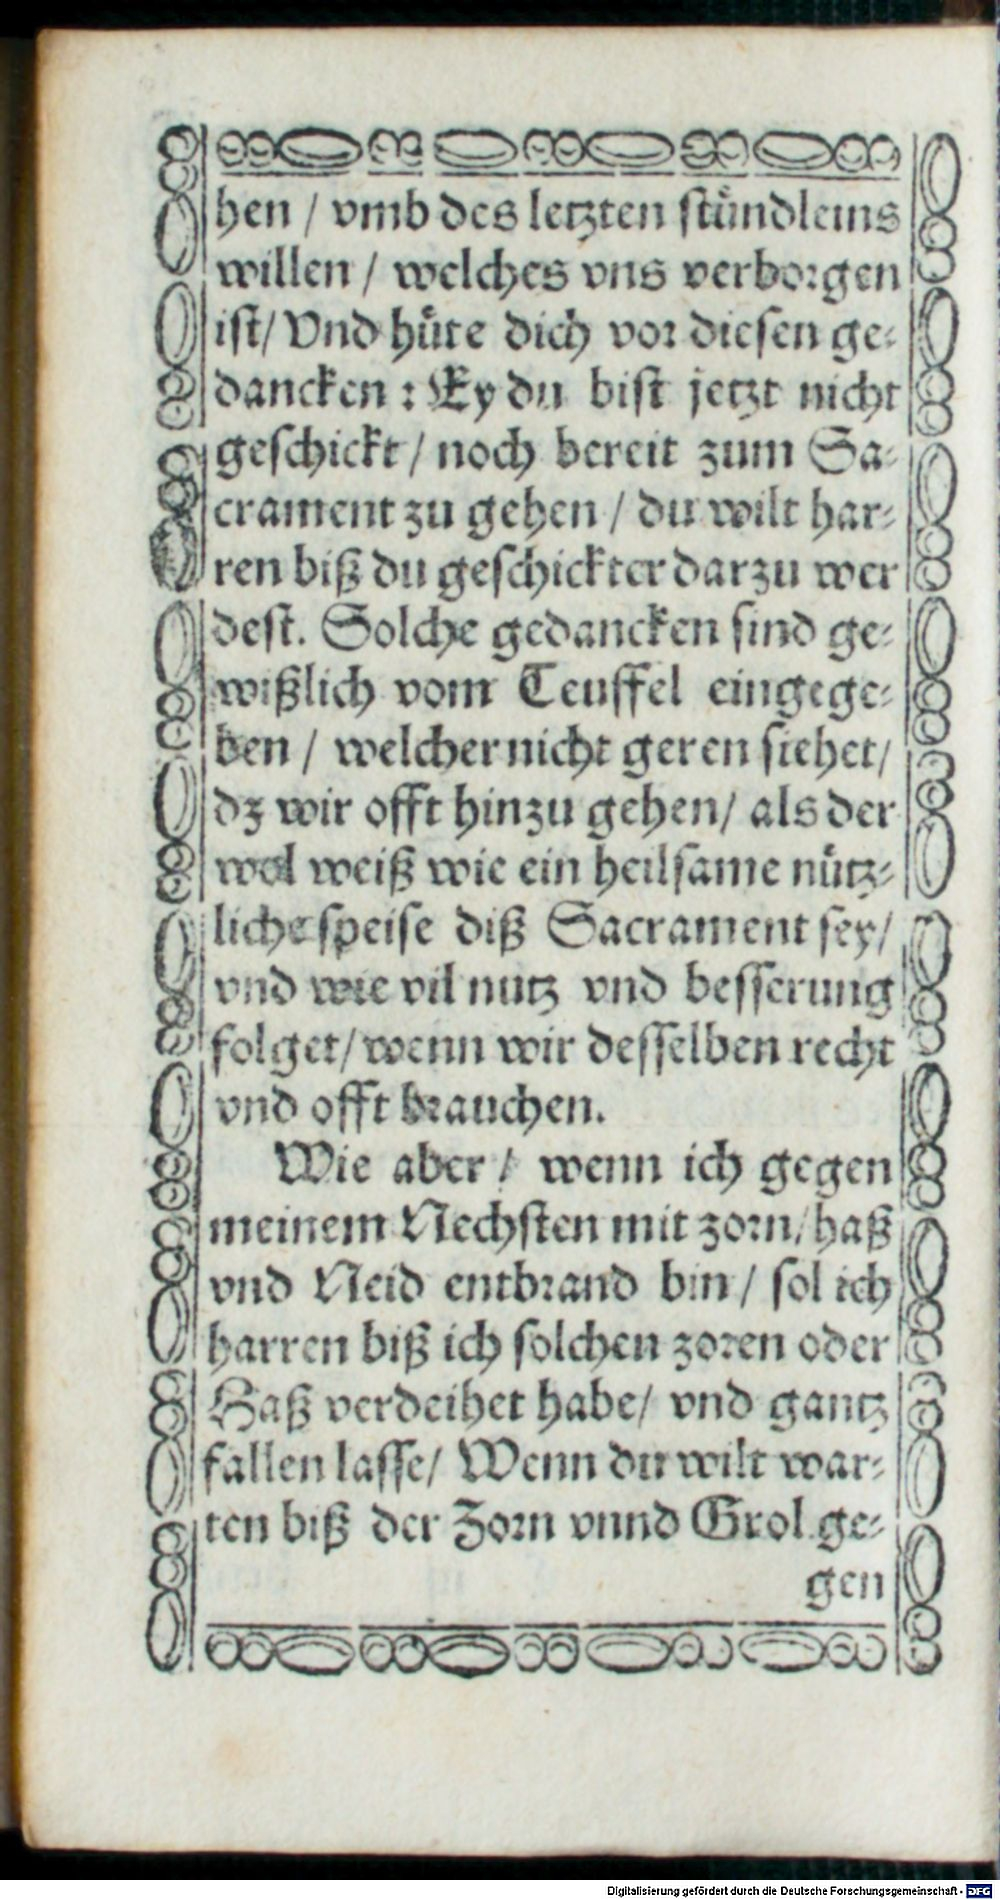 hen / vmb des letzten stuͤndleins
willen / welches vns verborgen
ist/ Vnd huͤte dich vor diesen ge-
dancken : Ey du bist jetzt nicht
geschickt / noch bereit zum Sa-
crament zu gehen / du wilt har-
ren biß du geschickter darzu wer
dest. Solche gedancken sind ge-
wißlich vom Teuffel eingege-
ben / welcher nicht geren siehet/
dz wir offt hinzu gehen/ als der
wol weiß wie ein heilsame nuͤtz-
liche speise diß Sacrament sey/
vnd wie vil nutz vnd besserung
folget/ wenn wir desselben recht
vnd offt brauchen.
Wie aber / wenn ich gegen
meinem Nechsten mit zorn/ haß
vnd Neid entbrand bin / sol ich
harren biß ich solchen zoren oder
Haß verdeihet habe/ vnd gantz
fallen lasse/ Wenn du wilt war-
ten biß der Zorn vnnd Grol ge-
gen
Digitalisierung gefördert durch die Deutsche Forschungsgemeinschaft - DFG